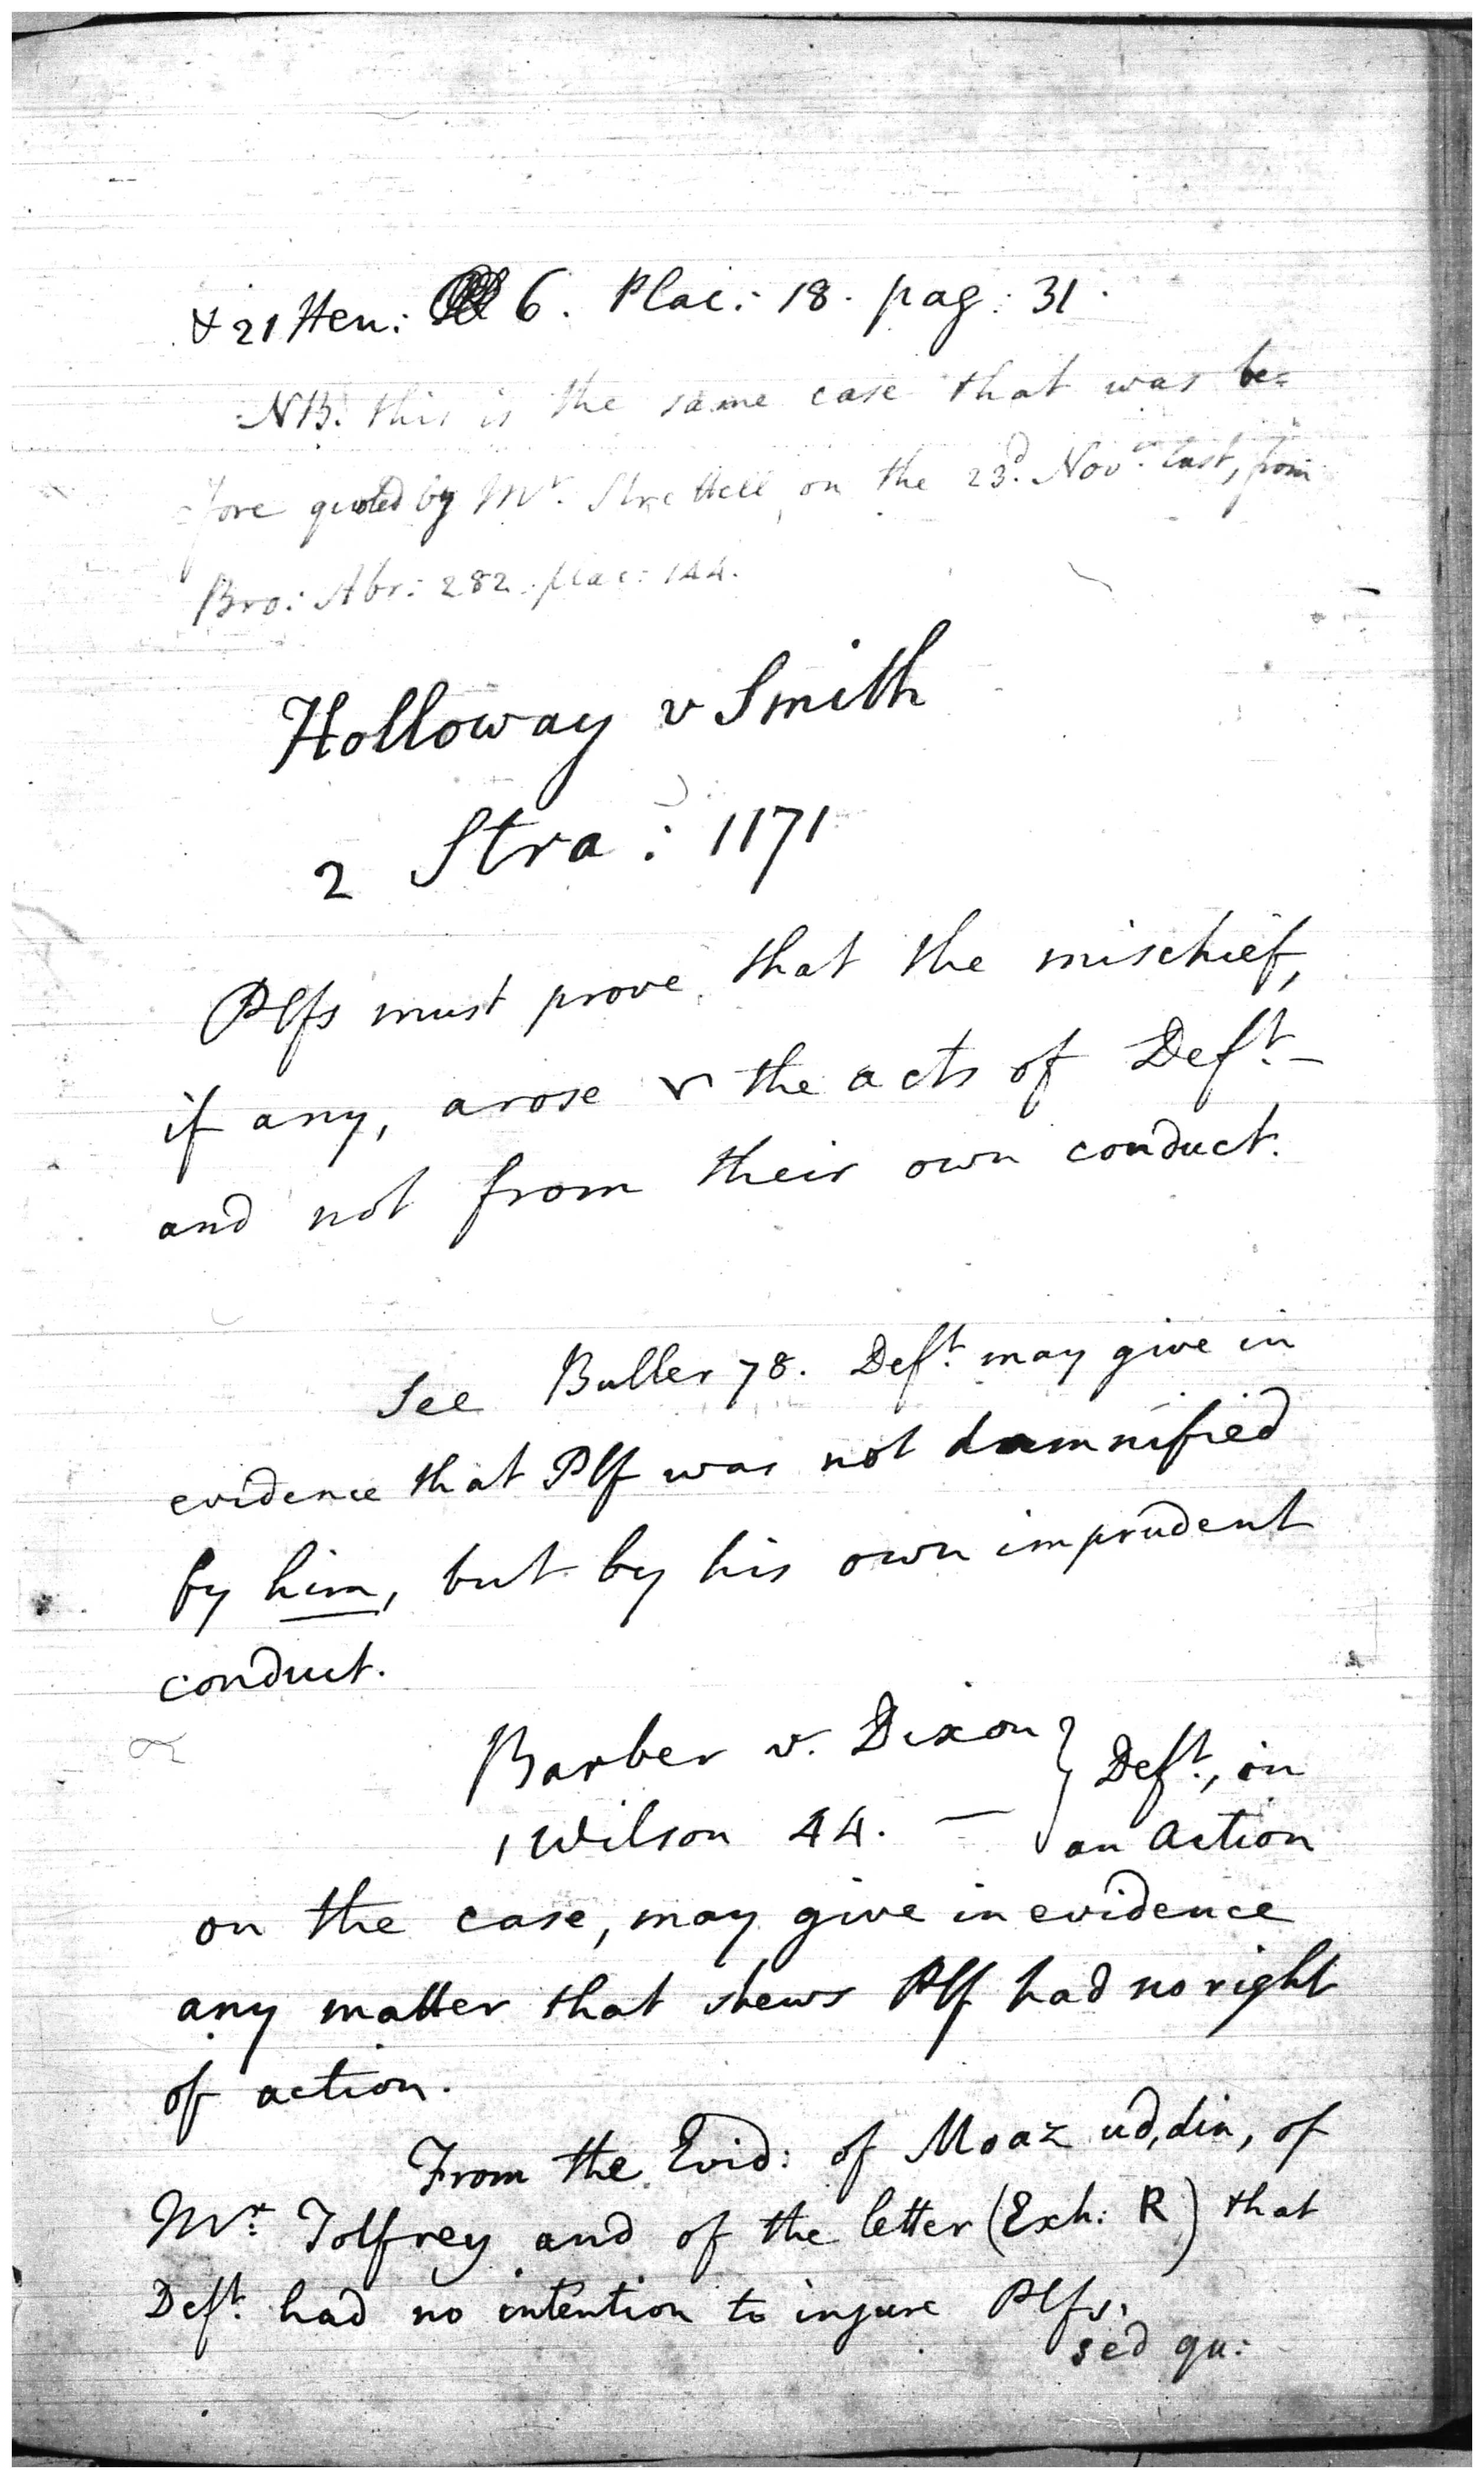 & 21 Hen: 6. Plac: 18. pag: 31.
NB. this is the same case that was be=
=fore quoted by Mr. Strettell, on the 23d. Novr. last, from
Bro: Abr: 282. plac: 144.
Holloway v Smith
2 Stra: 1171
Plfs must prove, that the mischief,
if any, arose the acts of Deft. –
and not from their own conduct.
See Buller 78. Deft. may give in
evidence that Plf was not damnified
by him, but by his own imprudent
conduct.
Barber v. Dixon } Deft., in
1 Wilson 44. — an action
on the case, may give in evidence
any matter that shews Plf had no right
of action.
From the Evid: of Moaz ud,din, of
Mr. Tolfrey and of the letter (Exh: R) that
Deft. had no intention to injure Plfs.
sed qu: